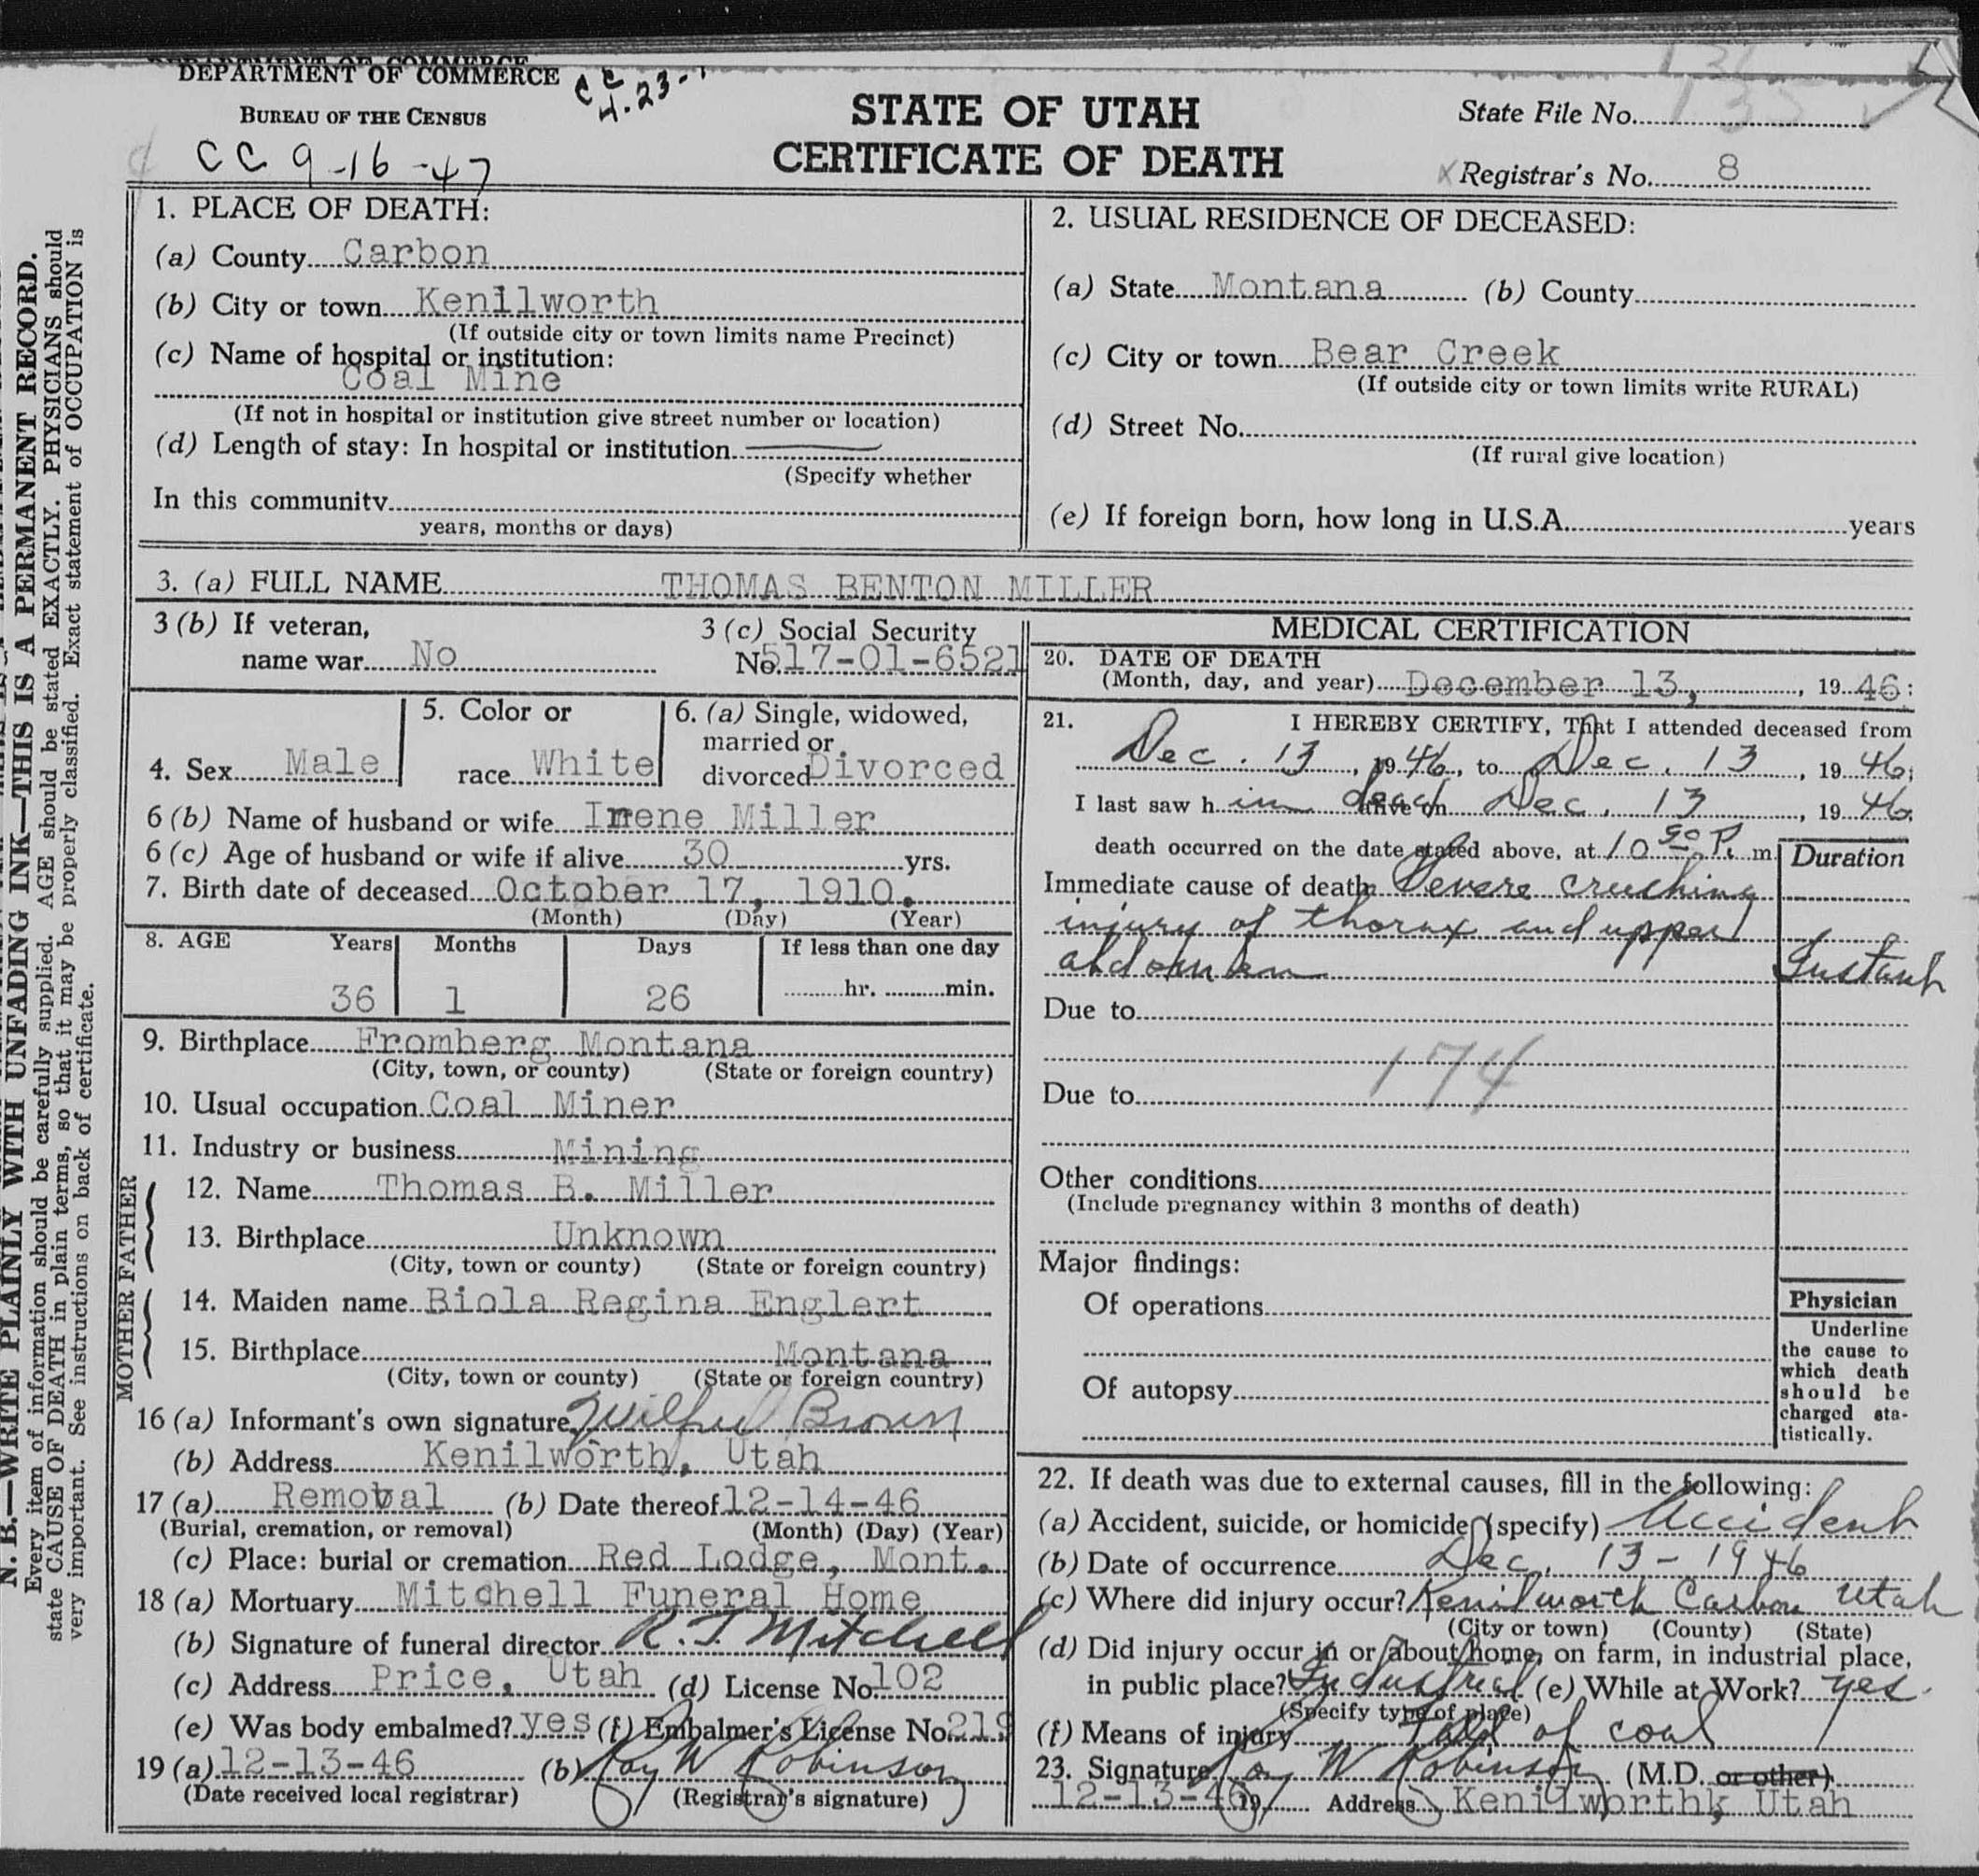 DEPARTMENT OF COMMERCE
BUREAU OF THE CENSUS
CC 4-23-
CC 9-16-47
STATE OF UTAH
CERTIFICATE OF DEATH
State File No. 135
Registrar's No. 8
N. B.—WRITE PLAINLY WITH UNFADING INK—THIS IS A PERMANENT RECORD.
Every item of information should be carefully supplied. AGE should be stated EXACTLY. PHYSICIANS should
state CAUSE OF DEATH in plain terms, so that it may be properly classified. Exact statement of OCCUPATION is
very important. See instructions on back of certificate.
1. PLACE OF DEATH:
(a) County Carbon
(b) City or town Kenilworth
(If outside city or town limits name Precinct)
(c) Name of hospital or institution:
Coal Mine
(If not in hospital or institution give street number or location)
(d) Length of stay: In hospital or institution
(Specify whether
In this community
years, months or days)
2. USUAL RESIDENCE OF DECEASED:
(a) State Montana (b) County
(c) City or town Bear Creek
(If outside city or town limits write RURAL)
(d) Street No.
(If rural give location)
(e) If foreign born, how long in U.S.A. years
3. (a) FULL NAME THOMAS BENTON MILLER
3 (b) If veteran,
name war No
3 (c) Social Security
No. 517-01-6521
4. Sex Male
5. Color or
race White
6. (a) Single, widowed,
married or
divorced Divorced
6 (b) Name of husband or wife Irene Miller
6 (c) Age of husband or wife if alive 30 yrs.
7. Birth date of deceased October 17, 1910.
(Month) (Day) (Year)
8. AGE Years Months Days If less than one day
36 1 26 hr. min.
9. Birthplace Fromberg Montana
(City, town, or county) (State or foreign country)
10. Usual occupation Coal Miner
11. Industry or business Mining
FATHER
12. Name Thomas B. Miller
13. Birthplace Unknown
(City, town or county) (State or foreign country)
MOTHER
14. Maiden name Biola Regina Englert
15. Birthplace Montana
(City, town or county) (State or foreign country)
16 (a) Informant's own signature Wilfred Brown
(b) Address Kenilworth, Utah
17 (a) Removal (b) Date thereof 12-14-46
(Burial, cremation, or removal) (Month) (Day) (Year)
(c) Place: burial or cremation Red Lodge, Mont.
18 (a) Mortuary Mitchell Funeral Home
(b) Signature of funeral director R. T. Mitchell
(c) Address Price, Utah (d) License No. 102
(e) Was body embalmed? yes (f) Embalmer's License No. 219
19 (a) 12-13-46 (b) Roy W Robinson
(Date received local registrar) (Registrar's signature)
MEDICAL CERTIFICATION
20. DATE OF DEATH
(Month, day, and year) December 13, , 19 46:
21. I HEREBY CERTIFY, That I attended deceased from
Dec. 13, 1946, to Dec. 13, 19 46;
I last saw h im dead alive on Dec. 13, 19 46;
death occurred on the date stated above, at 10 50 P. m.
Duration
Immediate cause of death Severe crushing
injury of thorax and upper
abdomen Instant
Due to
174
Due to
Other conditions
(Include pregnancy within 3 months of death)
Major findings:
Of operations
Of autopsy
Physician
Underline
the cause to
which death
should be
charged sta-
tistically.
22. If death was due to external causes, fill in the following:
(a) Accident, suicide, or homicide (specify) Accident
(b) Date of occurrence Dec. 13-1946
(c) Where did injury occur? Kenilworth Carbon Utah
(City or town) (County) (State)
(d) Did injury occur in or about home, on farm, in industrial place,
in public place? Industrial (e) While at Work? yes.
(Specify type of place)
(f) Means of injury Fall of coal
23. Signature Roy W Robinson (M.D. or other)
12-13-46 19 Address Kenilworth, Utah